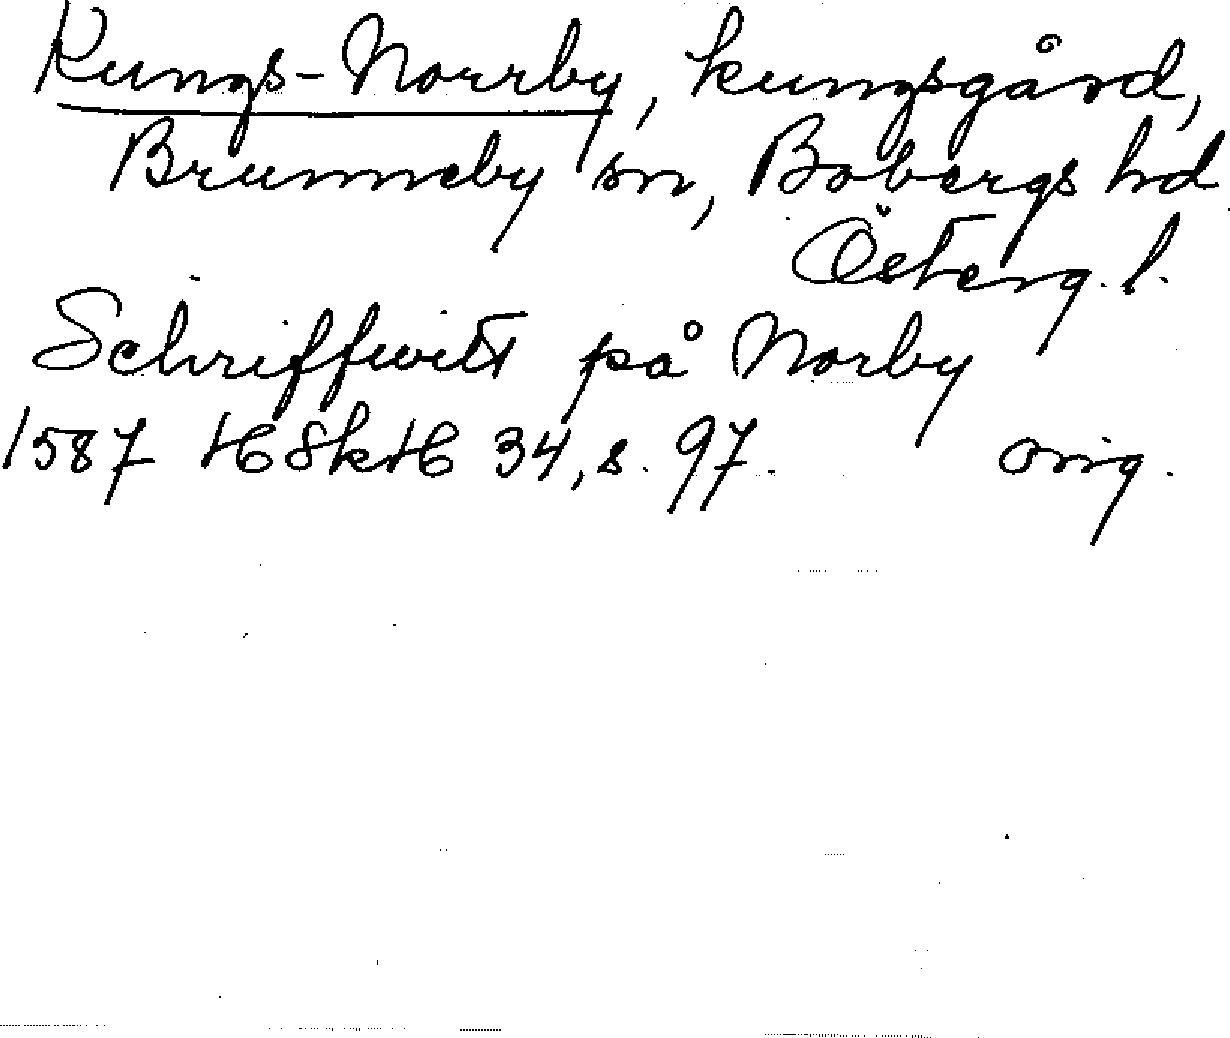 Kungs-Norrby, kungsgård,
Brunneby sn, Bobergs hd
Österg. l.
Schriffwitt på Norby
1587 HSkH 34, s. 97. orig.